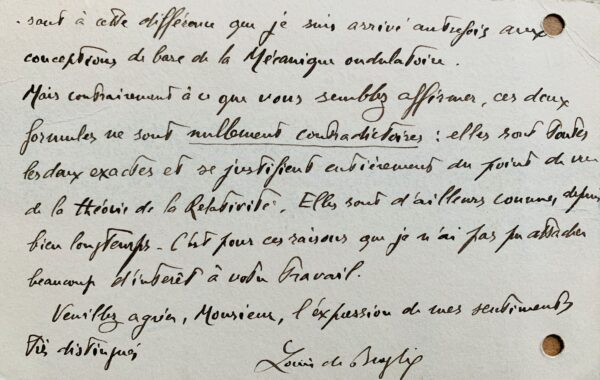 -sant à cette différence que je suis arrivé autrefois aux
conceptions de base de la Mécanique ondulatoire.
Mais contrairement à ce que vous semblez affirmer, ces deux
formules ne sont nullement contradictoires : elles sont toutes
les deux exactes et se justifient entièrement du point de vue
de la théorie de la Relativité. Elles sont d'ailleurs connues, depuis
bien longtemps. C'est pour ces raisons que je n'ai pas pu attacher
beaucoup d'intérêt à votre travail.
Veuillez agréer, Monsieur, l'expression de mes sentiments
très distingués
Louis de Broglie